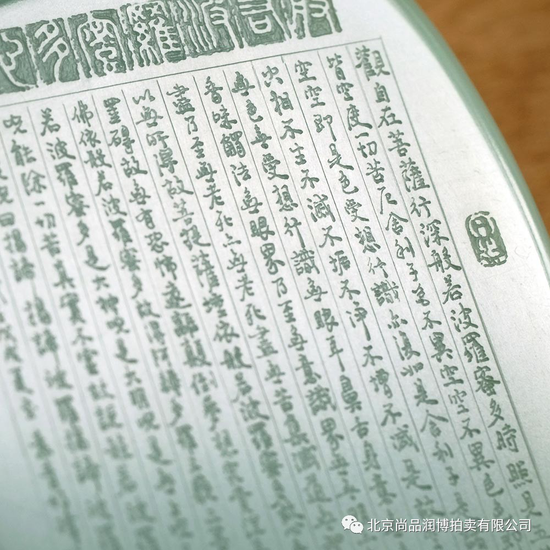 般若波羅蜜多心
觀自在菩薩行深般若波羅蜜多時照見
皆空度一切苦厄舍利子色不異空空不異色
空空即是色受想行識亦復如是舍利子
空相不生不滅不垢不淨不增不減是
無色無受想行識無眼耳鼻舌身意
香味觸法無眼界乃至無意識界無
盡乃至無老死亦無老死盡無苦集滅道
以無所得故菩提薩埵依般若波羅蜜多
罣礙故無有恐怖遠離顛倒夢想
佛依般若波羅蜜多故得阿耨多羅三藐
若波羅蜜多是大神咒是大明咒是無
咒能除一切苦真實不虛故說般
咒曰揭諦揭諦波羅揭諦
北京尚品润博拍卖有限公司